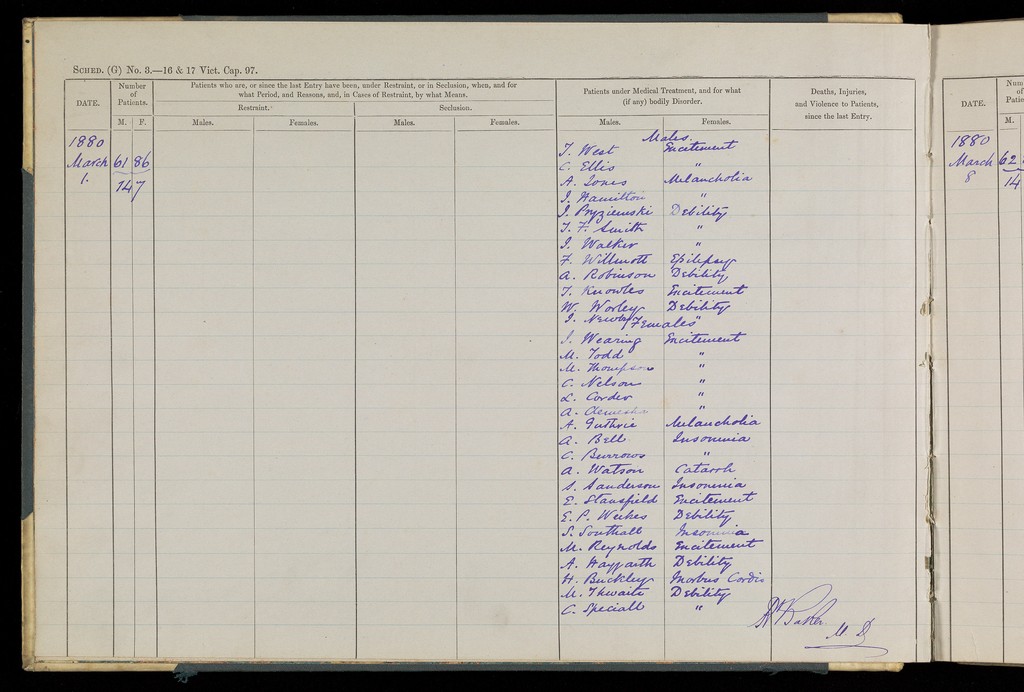 SCHED. (G) No. 3.—16 & 17 Vict. Cap. 97.
DATE.
Number of Patients.
M. F.
Patients who are, or since the last Entry have been, under Restraint, or in Seclusion, when, and for
what Period, and Reasons, and, in Cases of Restraint, by what Means.
Restraint. Seclusion.
Males. Females. Males. Females.
Patients under Medical Treatment, and for what
(if any) bodily Disorder.
Males. Females.
Deaths, Injuries,
and Violence to Patients,
since the last Entry.
1880
March 61 86
1. 147
Males.
T. West Excitement
C. Ellis "
A. Jones Melancholia
J. Hamilton "
J. Pryziemski Debility
T. F. Smith "
J. Walker "
F. Willmott Epilepsy
A. Robinson Debility
T. Knowles Excitement
W. Worley Debility
J. Newby "
Females
J. Wearing Excitement
M. Todd "
M. Thompson "
C. Nelson "
L. Corder "
A. "
A. Guthrie Melancholia
A. Bell Insomnia
C. Burrows "
A. Watson Catarrh
S. Sanderson Insomnia
E. Stansfield Excitement
E. P. Weekes Debility
S. Southall Insomnia
M. Reynolds Excitement
A. Haygarth Debility
H. Buckley Morbus Cordis
M. Thwaite Debility
C. Speciall "
Baker M D
DATE.
M.
1880
March 62
8 14